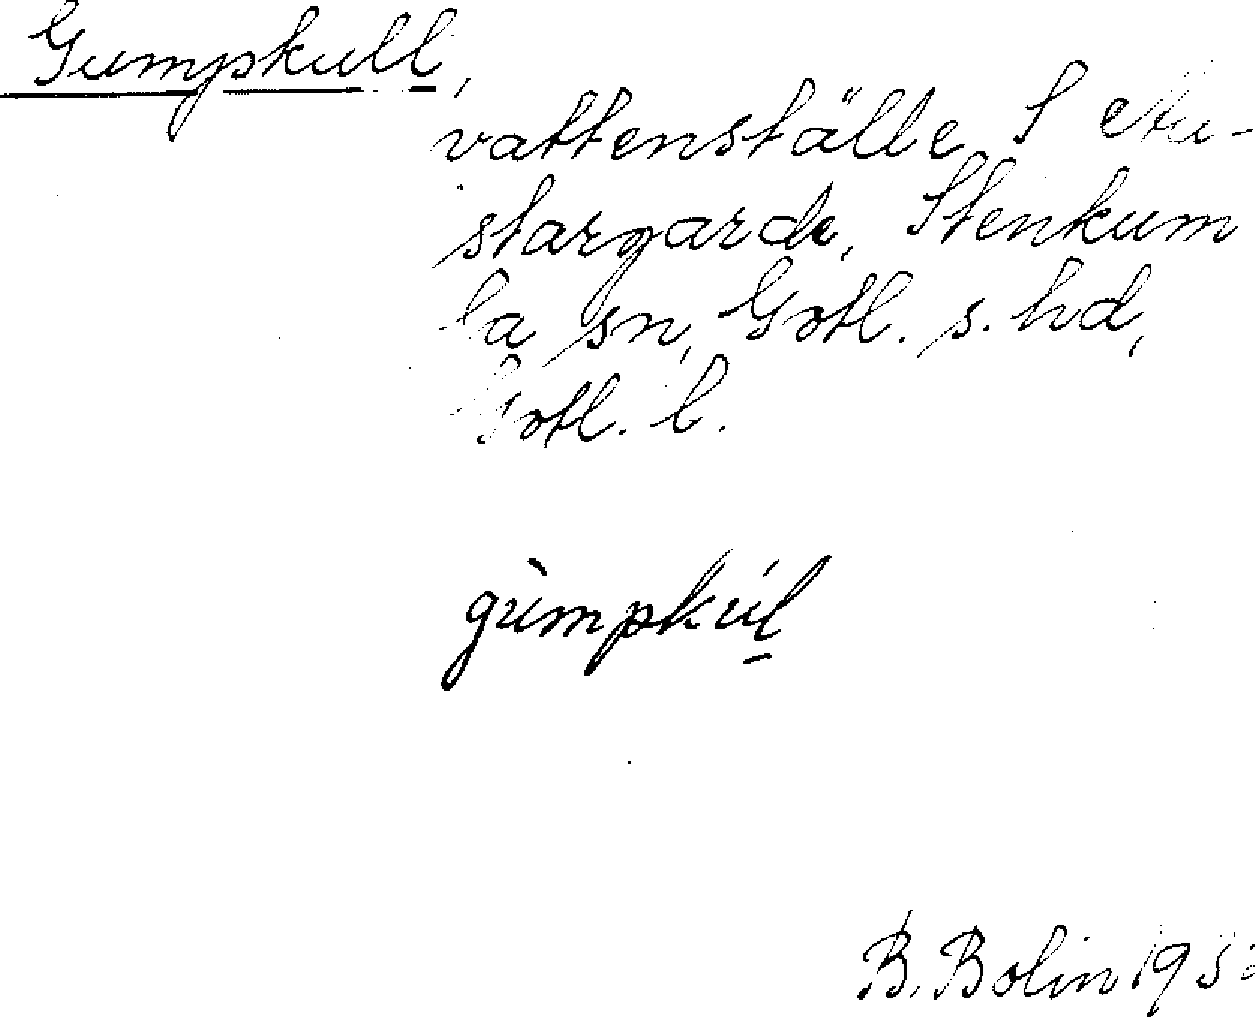 Gumpkull,
vattenställe S
stargarde, Stenkum
la sn, Gotl. s. hd,
Gotl. l.
gùmpkúl
B. Bolin